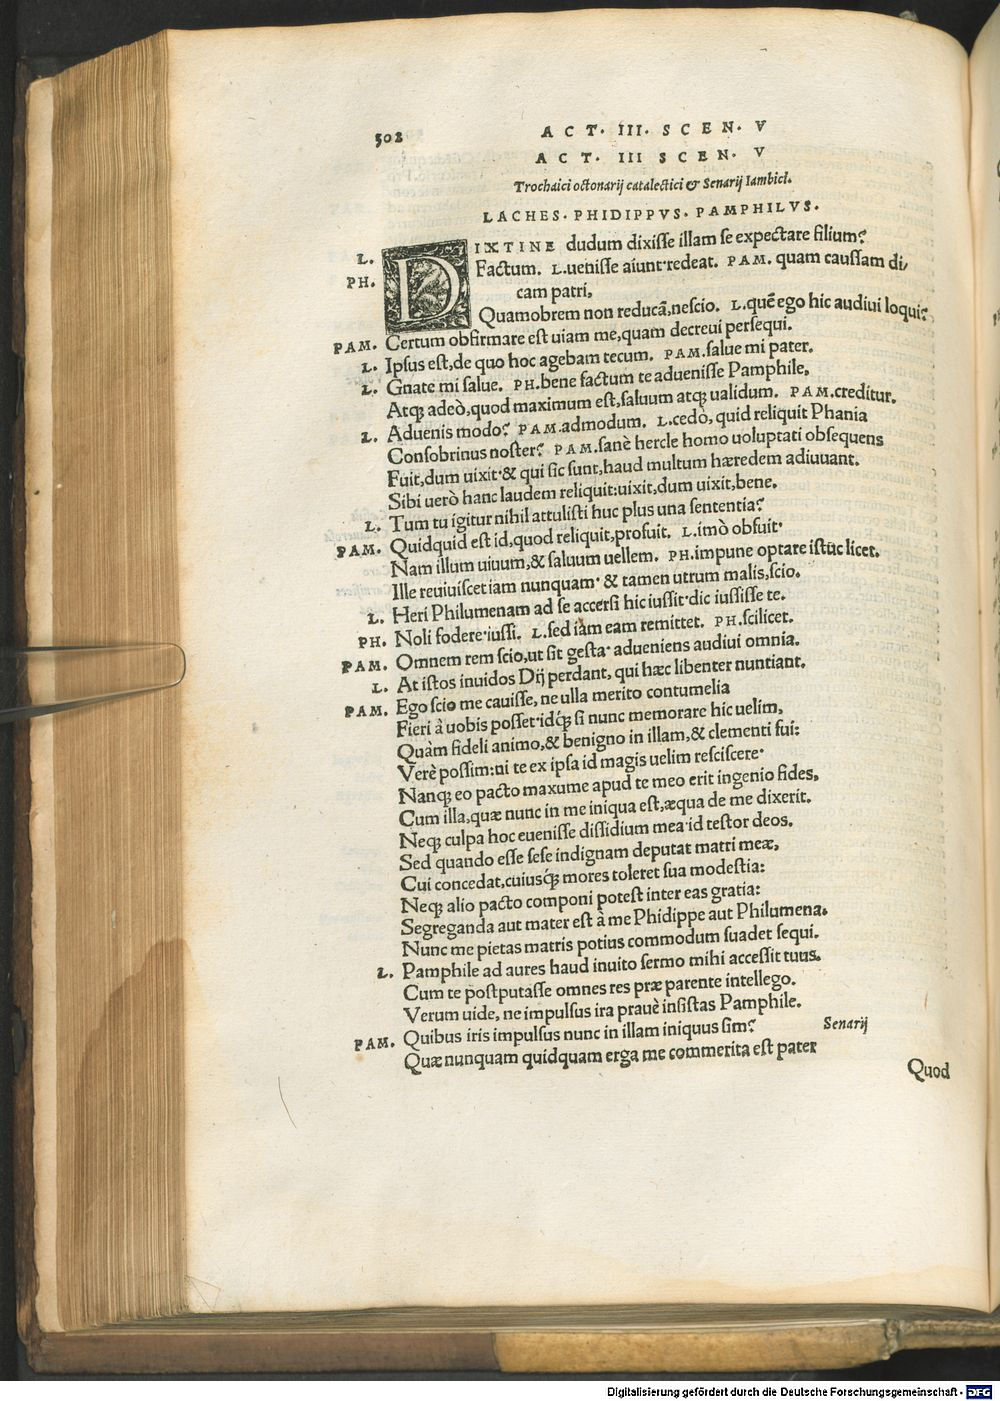 502
ACT. III. SCEN. V
ACT. III SCEN. V
Trochaici octonarij catalectici & Senarij Iambici.
LACHES. PHIDIPPVS. PAMPHILVS.
L. DIXTINE dudum dixisse illam se expectare filium?
PH. Factum. L.uenisse aiunt·redeat. PAM. quam caussam di/
cam patri,
Quamobrem non reducā,nescio. L.quē ego hic audiui loqui?
PAM. Certum obfirmare est uiam me,quam decreui persequi.
L. Ipsus est,de quo hoc agebam tecum. PAM.salue mi pater.
L. Gnate mi salue. PH.bene factum te aduenisse Pamphile,
Atq; adeò,quod maximum est,saluum atq; ualidum. PAM.creditur.
L. Aduenis modo? PAM.admodum. L.cedò, quid reliquit Phania
Consobrinus noster? PAM.sanè hercle homo uoluptati obsequens
Fuit,dum uixit·& qui sic sunt,haud multum hæredem adiuuant.
Sibi uerò hanc laudem reliquit:uixit,dum uixit,bene.
L. Tum tu igitur nihil attulisti huc plus una sententia?
PAM. Quidquid est id,quod reliquit,profuit. L.imò obfuit·
Nam illum uiuum,& saluum uellem. PH.impune optare istuc licet.
Ille reuiuiscet iam nunquam· & tamen utrum malis,scio.
L. Heri Philumenam ad se accersi hic iussit·dic iussisse te.
PH. Noli fodere·iussi. L.sed iam eam remittet. PH.scilicet.
PAM. Omnem rem scio,ut sit gesta· adueniens audiui omnia.
L. At istos inuidos Dij perdant, qui hæc libenter nuntiant.
PAM. Ego scio me cauisse, ne ulla merito contumelia
Fieri à uobis posset·idq́; si nunc memorare hic uelim,
Quàm fideli animo,& benigno in illam,& clementi fui:
Verè possim:ni te ex ipsa id magis uelim resciscere·
Nanq; eo pacto maxume apud te meo erit ingenio fides,
Cum illa,quæ nunc in me iniqua est,æqua de me dixerit.
Neq; culpa hoc euenisse dissidium mea·id testor deos.
Sed quando esse sese indignam deputat matri meæ,
Cui concedat,cuiusq́; mores toleret sua modestia:
Neq; alio pacto componi potest inter eas gratia:
Segreganda aut mater est à me Phidippe aut Philumena.
Nunc me pietas matris potius commodum suadet sequi.
L. Pamphile ad aures haud inuito sermo mihi accessit tuus.
Cum te postputasse omnes res præ parente intellego.
Verum uide, ne impulsus ira prauè insistas Pamphile.
PAM. Quibus iris impulsus nunc in illam iniquus sim? Senarij
Quæ nunquam quidquam erga me commerita est pater
Quod
Digitalisierung gefördert durch die Deutsche Forschungsgemeinschaft - DFG